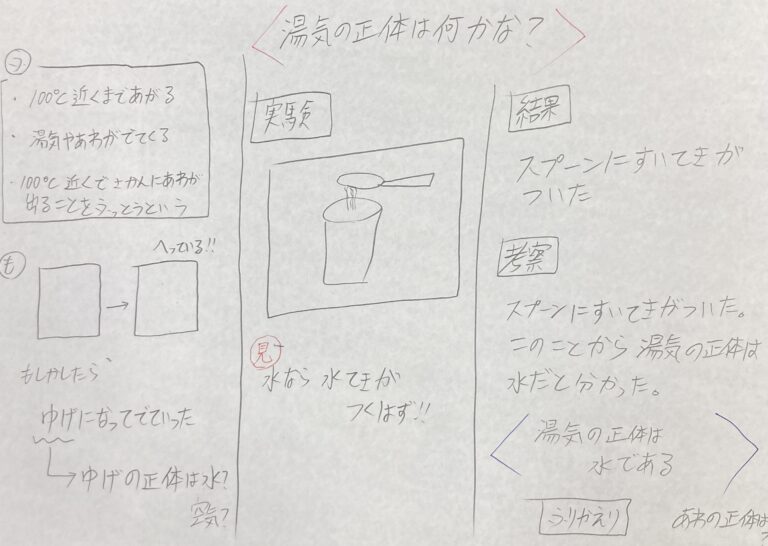 湯気の正体は何かな?
・100℃近くまであがる
・湯気やあわがでてくる
・100℃近くでさかんにあわが
出ることをふっとうという
も
へっている!!
もしかしたら
ゆげになってでていった
ゆげの正体は水?
空気?
実験
見
水なら水てきが
つくはず!!
結果
スプーンにすいてきが
ついた
考察
スプーンにすいてきがついた。
このことから湯気の正体は
水だと分かった。
湯気の正体は
水である
ふりかえり
あわの正体は